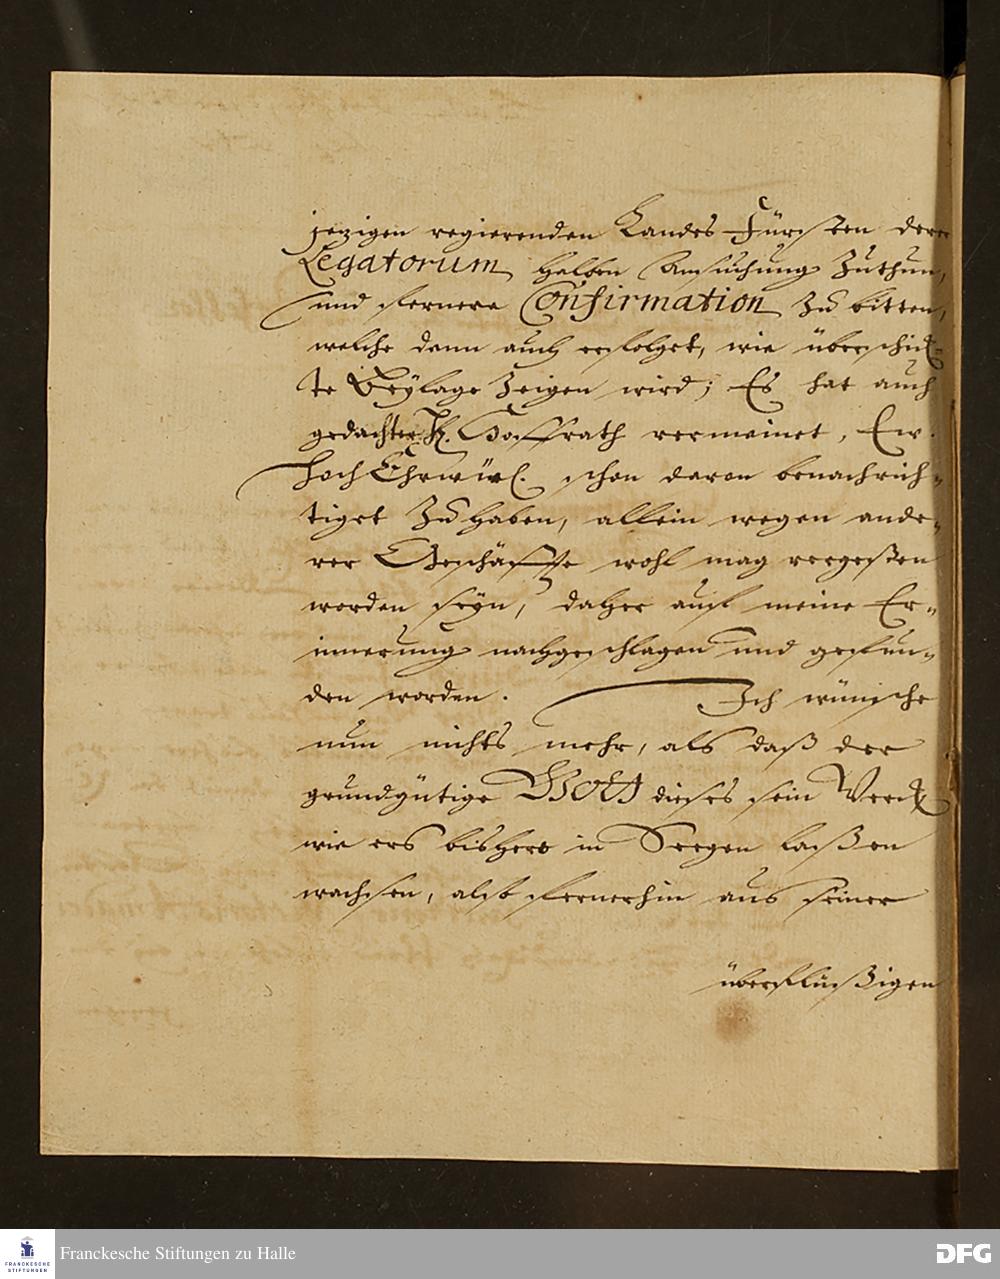 jezigen regierenden Landes-Fürsten derer
Legatorum halben Ansuchung zuthun,
und fernere Confirmation zu bitten,
welche dann auch erfolget, wie überschick-
te Beylage zeigen wird; Es hat auch
gedachter H. Hoffrath vermeinet, Ew.
HochEhrwürd. schon davon benachrich-
tiget zu haben, allein wegen ande-
rer Geschäffte wohl mag vergeßen
worden seyn, daher auf meine Er-
innerung nachgeschlagen und gefun-
den worden. Ich wünsche
nun nichts mehr, als daß der
grundgütige Gott dieses sein Werck
wie ers bishero in Seegen laßen
wachsen, also fernerhin aus seiner
überflüßigen
FRANCKESCHE
STIFTUNGEN
Franckesche Stiftungen zu Halle
DFG